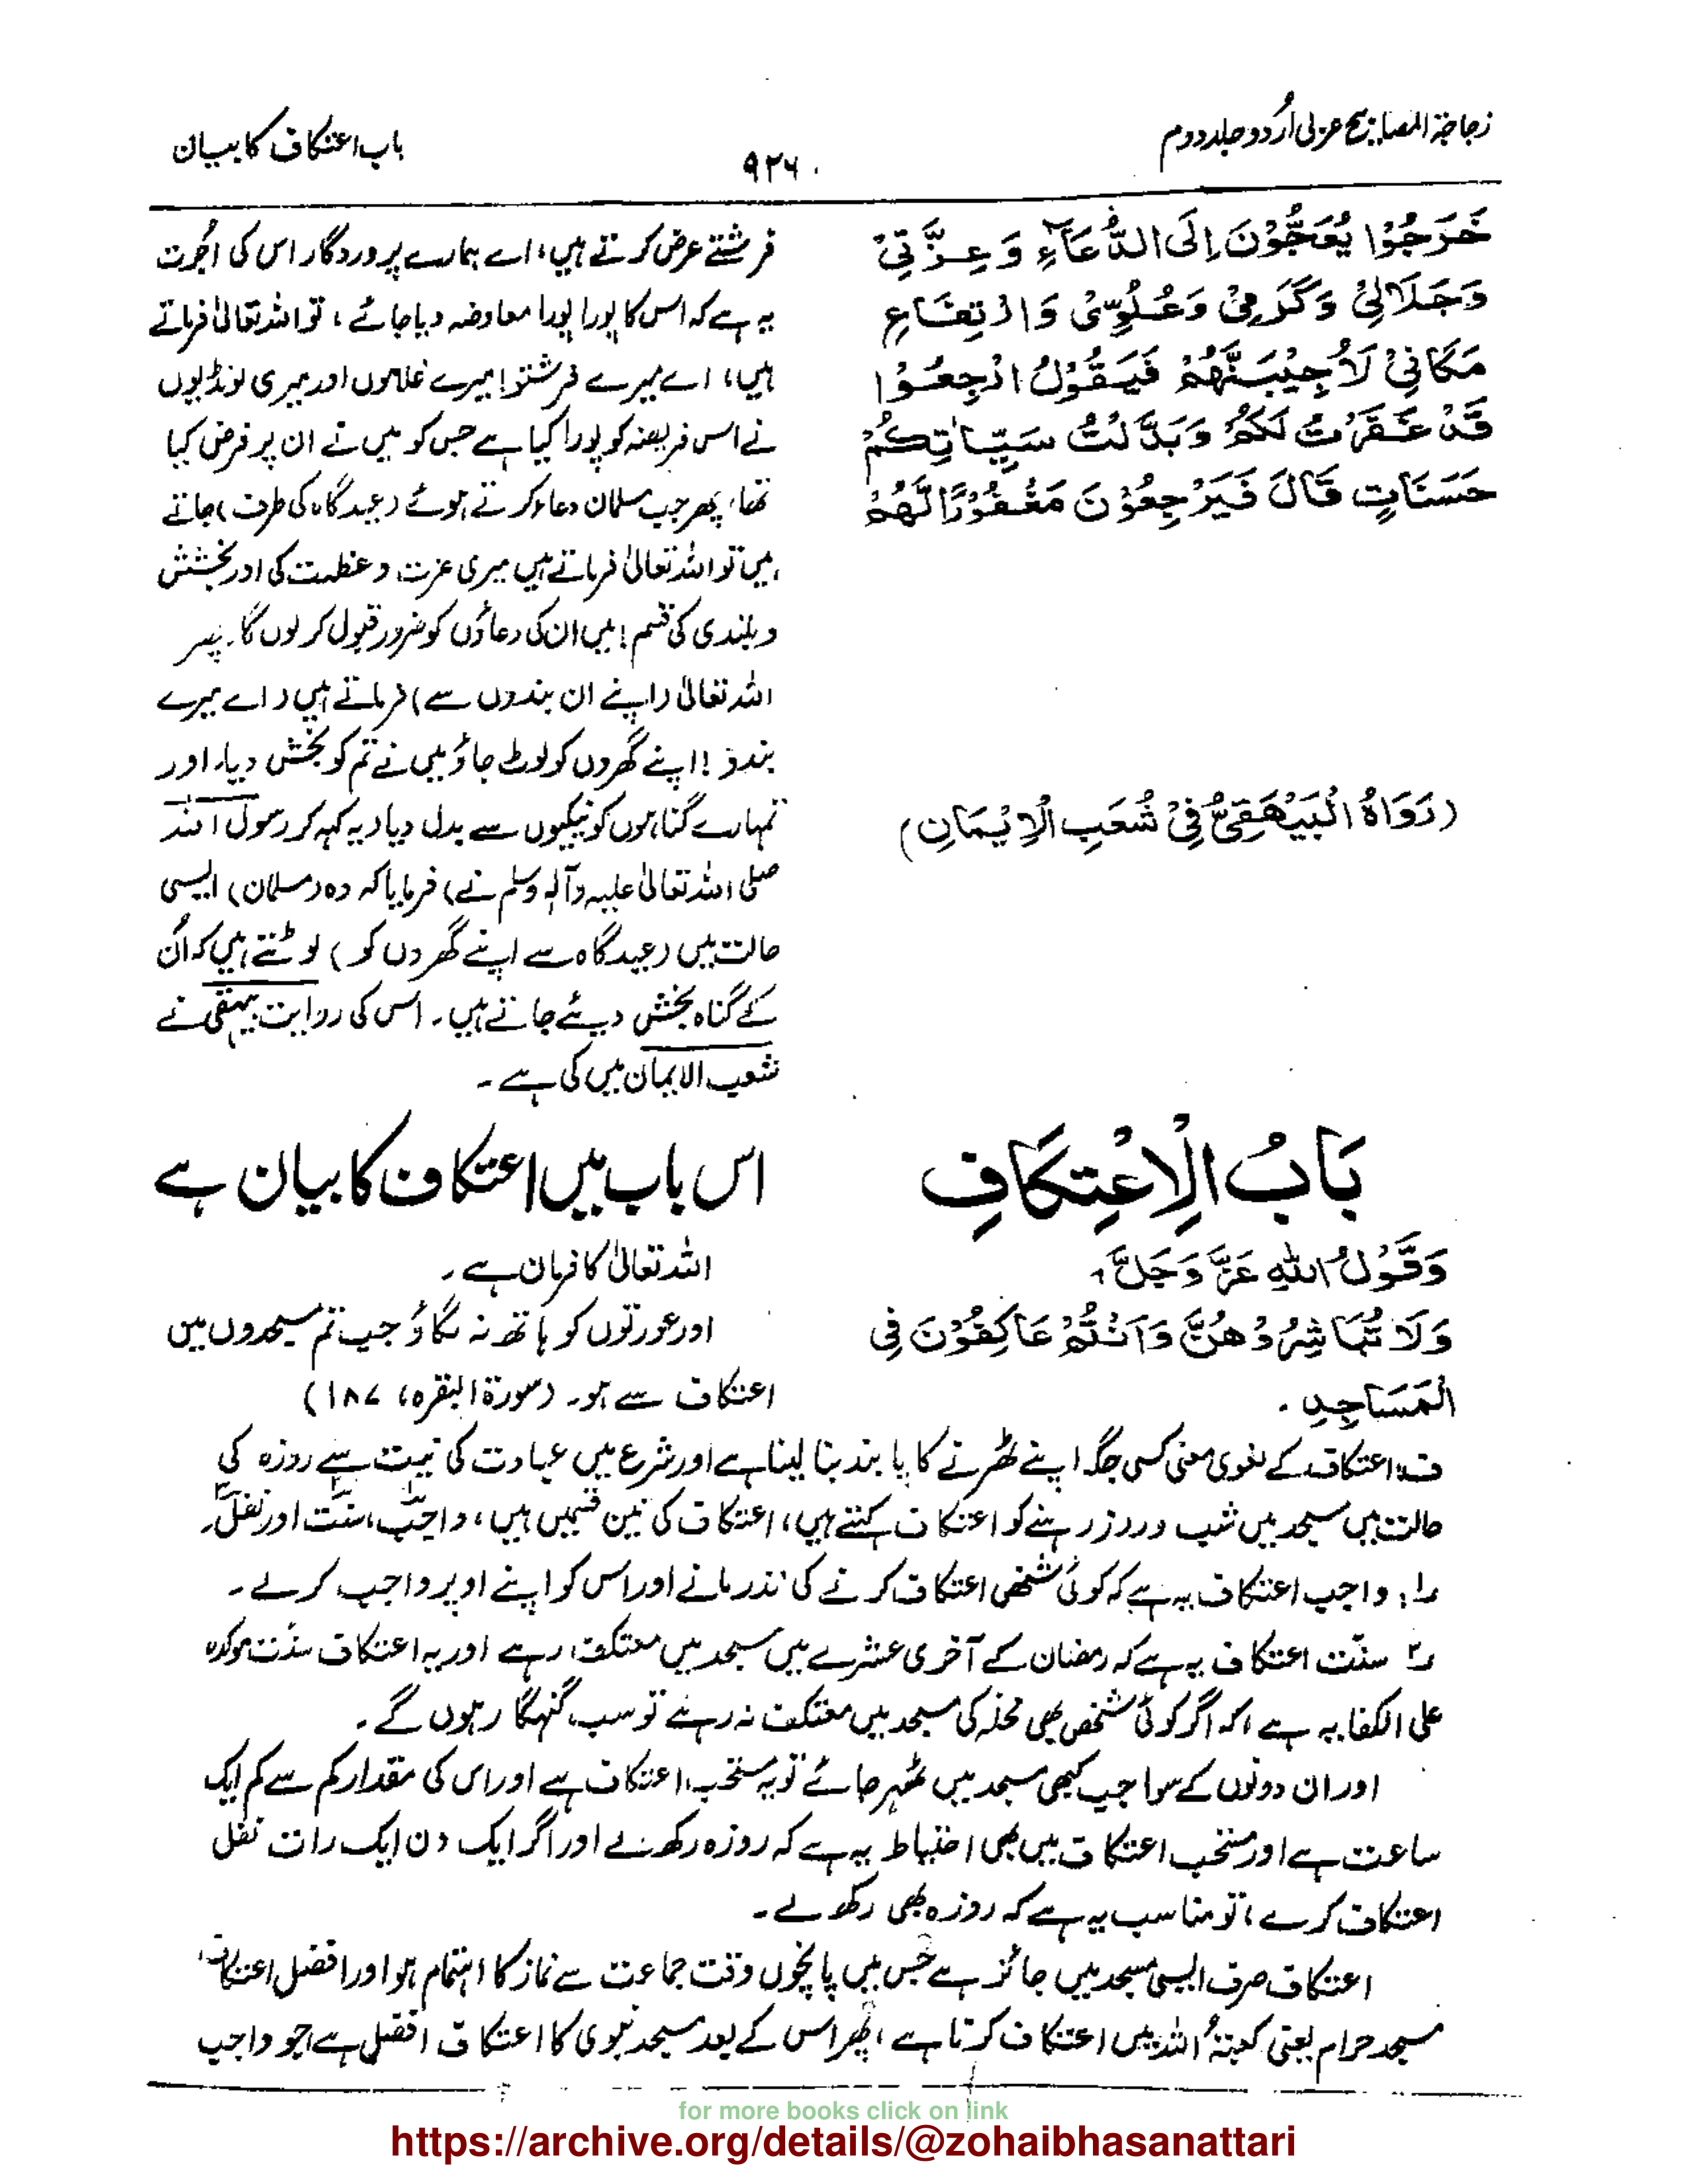 زجاجۃ المصابیح عربی اُردو جلد دوم
۹۲۶
باب اعتکاف کا بیان
خَرَجُوْا يُعَجُّوْنَ اِلَى الدُّعَآءِ وَ عِزَّتِيْ
وَجَلَالِيْ وَكَرَمِيْ وَعُلُوِّىْ وَارْتِفَاعِ
مَكَانِيْ لَاُجِيْبَنَّهُمْ فَيَقُوْلُ ارْجِعُوْا
قَدْ غَفَرْتُ لَكُمْ وَبَدَّلْتُ سَيِّاٰتِكُمْ
حَسَنَاتٍ قَالَ فَيَرْجِعُوْنَ مَغْفُوْرًا لَّهُمْ
(رَوَاهُ الْبَيْهَقِيُّ فِيْ شُعَبِ الْاِيْمَانِ)
فرشتے عرض کرتے ہیں، اے ہمارے پروردگار اس کی اُجرت
یہ ہے کہ اس کا پورا پورا معاوضہ دیا جائے، تو اللہ تعالیٰ فرماتے
ہیں، اے میرے فرشتو! میرے غلاموں اور میری لونڈیوں
نے اس فریضہ کو پورا کیا ہے جس کو میں نے ان پر فرض کیا
تھا، پھر جب مسلمان دعاء کرتے ہوئے (عیدگاہ کی طرف) جاتے
ہیں تو اللہ تعالیٰ فرماتے ہیں میری عزت و عظمت کی اور بخشش
و بلندی کی قسم! میں ان کی دعاؤں کو ضرور قبول کرلوں گا۔ پھر
اللہ تعالیٰ (اپنے ان بندوں سے) فرماتے ہیں (اے میرے
بندو! اپنے گھروں کو لوٹ جاؤ میں نے تم کو بخش دیا، اور
تمہارے گناہوں کو نیکیوں سے بدل دیا (یہ کہہ کر رسول اللہ
صلی اللہ تعالیٰ علیہ وآلہ وسلم نے) فرمایا کہ وہ (مسلمان) ایسی
حالت میں (عیدگاہ سے اپنے گھروں کو) لوٹتے ہیں کہ اُن
کے گناہ بخش دیئے جاتے ہیں۔ اس کی روایت بیہقی نے
شعب الایمان میں کی ہے۔
بَابُ الْاِعْتِكَافِ
وَقَوْلُ اللهِ عَزَّ وَجَلَّ،
وَلَا تُبَاشِرُوْهُنَّ وَاَنْتُمْ عَاكِفُوْنَ فِى
الْمَسَاجِدِ۔
اس باب میں اعتکاف کا بیان ہے
اللہ تعالیٰ کا فرمان ہے۔
اور عورتوں کو ہاتھ نہ لگاؤ جب تم مسجدوں میں
اعتکاف سے ہو۔ (سورۃ البقرہ، ۱۸۷)
ف: اعتکاف کے لغوی معنی کسی جگہ اپنے ٹھرنے کا پابند بنا لینا ہے اور شرع میں عبادت کی نیت سے روزہ کی
حالت میں مسجد میں شب و روز رہنے کو اعتکاف کہتے ہیں، اعتکاف کی تین قسمیں ہیں، واجب، سنت اور نفل۔
۱: واجب اعتکاف یہ ہے کہ کوئی شخص اعتکاف کرنے کی نذر مانے اور اس کو اپنے اوپر واجب کرلے۔
۲ سنّت اعتکاف یہ ہے کہ رمضان کے آخری عشرے میں مسجد میں معتکف رہے اور یہ اعتکاف سنّت موکدہ
علی الکفایہ ہے، کہ اگر کوئی شخص بھی محلہ کی مسجد میں معتکف نہ رہے تو سب گنہگار ہوں گے۔
اور ان دونوں کے سوا جب کبھی مسجد میں ٹھہر جائے تو یہ مستحب اعتکاف ہے اور اس کی مقدار کم سے کم ایک
ساعت ہے اور مستحب اعتکاف میں بھی احتیاط یہ ہے کہ روزہ رکھ لے اور اگر ایک دن ایک رات نفل
اعتکاف کرے، تو مناسب یہ ہے کہ روزہ بھی رکھ لے۔
اعتکاف صرف ایسی مسجد میں جائز ہے جس میں پانچوں وقت جماعت سے نماز کا اہتمام ہو اور افضل اعتکاف،
مسجد حرام یعنی کعبۃ اللہ میں اعتکاف کرنا ہے، پھر اس کے بعد مسجد نبوی کا اعتکاف افضل ہے جو واجب
for more books click on link
https://archive.org/details/@zohaibhasanattari